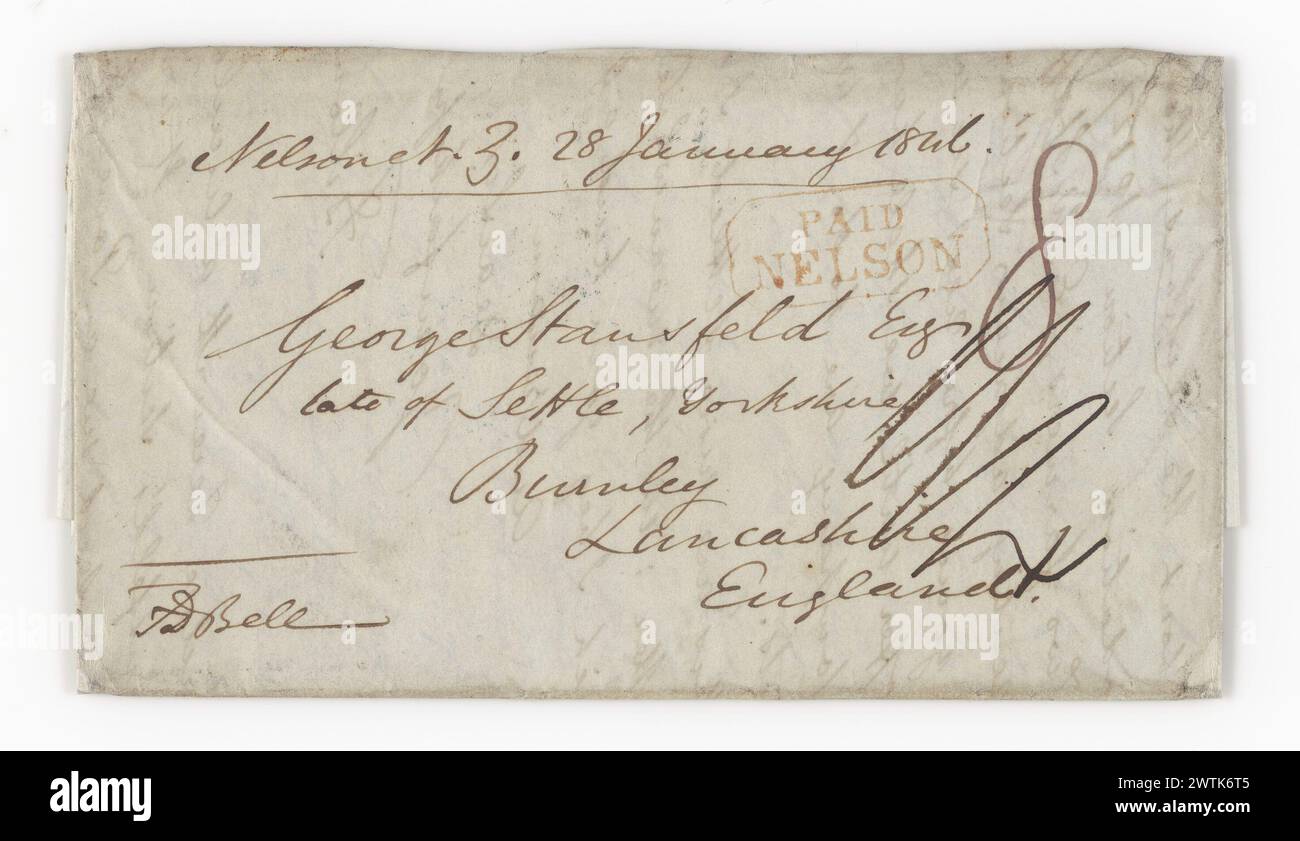 Nelson N. Z. 28 January 1846.
PAID
NELSON
8
George Stansfeld Esq
late of Settle, Yorkshire
Burnley
Lancashire
England.
FD Bell
alamy
Image ID: 2WTK6T5
www.alamy.com